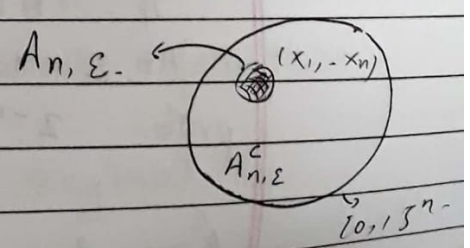 An, ε.
(x1, .. xn)
A^c n, ε
{0, 1}^n.